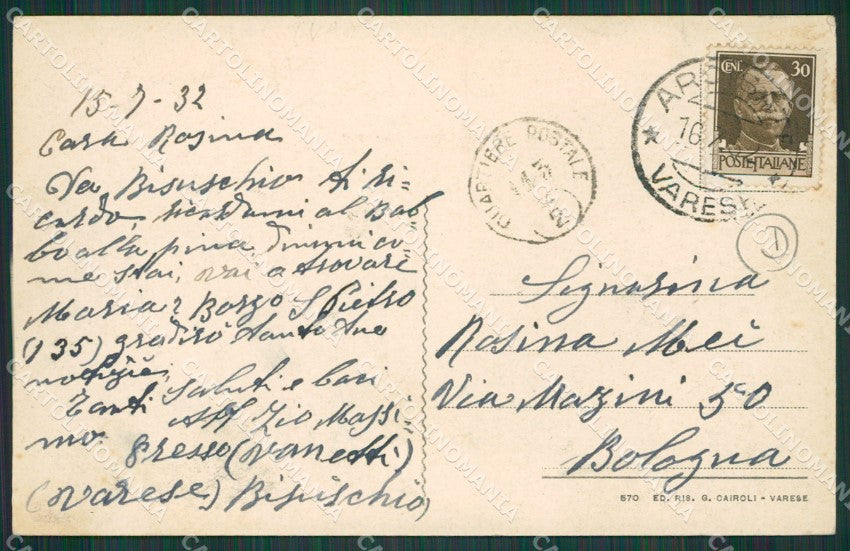 15-7-32
Cara Rosina
Da Bisuschio ti ri=
cordo, ricordami al Bab
bo alla pina, dimmi co=
me stai, vai a trovare
Maria? Borgo S. Pietro
(135) gradirò tanto tue
notizie,
Tanti saluti e baci
Aff Zio Massi
mo.
Presso (Vanetti)
(Varese) Bisuschio
QUARTIERE POSTALE
CENT. 30
POSTE ITALIANE
VARESE
1
Signorina
Rosina Mei
Via Mazini 50
Bologna
570 ED. RIS. G. CAIROLI - VARESE
CARTOLINOMANIA